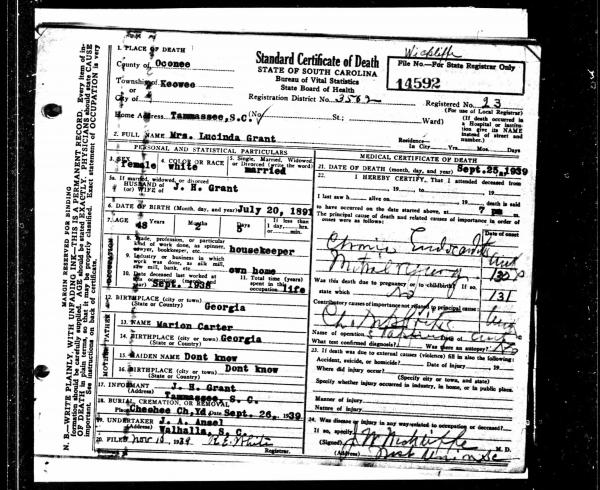 1. PLACE OF DEATH
County of Oconee
Township of Keowee
or
City of
Standard Certificate of Death
STATE OF SOUTH CAROLINA
Bureau of Vital Statistics
State Board of Health
File No.—For State Registrar Only
14592
Registration District No. 3562
Registered No. 23
(For use of Local Registrar)
Home Address Tammassee, S.C. (No. St.; Ward)
(If death occurred in a Hospital or institution give its NAME instead of street and number.)
2. FULL NAME Mrs. Lucinda Grant
Residence In City Yrs. Mos. Days
PERSONAL AND STATISTICAL PARTICULARS
3. SEX female
4. COLOR OR RACE white
5. Single, Married, Widowed, or Divorced (write the word) married
5a. If married, widowed, or divorced
HUSBAND of
(or) WIFE of J. H. Grant
6. DATE OF BIRTH (Month, day, and year) July 20, 1891
7. AGE 48 Years 2 Months Days If less than 1 day, hrs. min.
OCCUPATION
8. Trade, profession, or particular kind of work done, as spinner, sawyer, bookkeeper, etc. housekeeper
9. Industry or business in which work was done, as silk mill, saw mill, bank, etc. own home
10. Date deceased last worked at this occupation (month and year) Sept. 1938
11. Total time (years) spent in this occupation life
12. BIRTHPLACE (city or town)
(State or Country) Georgia
FATHER
13. NAME Marion Carter
14. BIRTHPLACE (city or town) Georgia
(State or Country)
MOTHER
15. MAIDEN NAME Dont know
16. BIRTHPLACE (city or town) Dont know
(State or Country)
17. INFORMANT J. H. Grant
(Address) Tammassee, S. C.
18. BURIAL, CREMATION, OR REMOVAL
Place Cheohee Ch, Yd Date Sept. 26, 1939
19. UNDERTAKER J. A. Ansel
(Address) Walhalla, S. C.
20. FILED Nov 10, 1939
Registrar.
MEDICAL CERTIFICATE OF DEATH
21. DATE OF DEATH (month, day, and year) Sept. 25, 1939
22. I HEREBY CERTIFY, That I attended deceased from
, 19 , to , 19
I last saw h alive on , 19 , death is said
to have occurred on the date stated above, at 7 pm.
The principal cause of death and related causes of importance in order of onset were as follows:
Date of onset
Chronic Endocarditis
Was this death due to pregnancy or childbirth? If so, state which
131
Contributory causes of importance not related to principal cause:
Name of operation Date of
What test confirmed diagnosis? Was there an autopsy?
23. If death was due to external causes (violence) fill in also the following:
Accident, suicide, or homicide? Date of injury , 19
Where did injury occur?
(Specify city or town, and state)
Specify whether injury occurred in industry, in home, or in public place.
Manner of injury
Nature of injury
24. Was disease or injury in any way related to occupation or deceased?
If so, specify
(Signed) M. D.
(Address) West Union SC
MARGIN RESERVED FOR BINDING
N. B.—WRITE PLAINLY, WITH UNFADING INK—THIS IS A PERMANENT RECORD. Every item of information should be carefully supplied. AGE should be stated EXACTLY. PHYSICIANS should state CAUSE OF DEATH in plain terms, so that it may be properly classified. Exact statement of OCCUPATION is very important. See instructions on back of certificate.